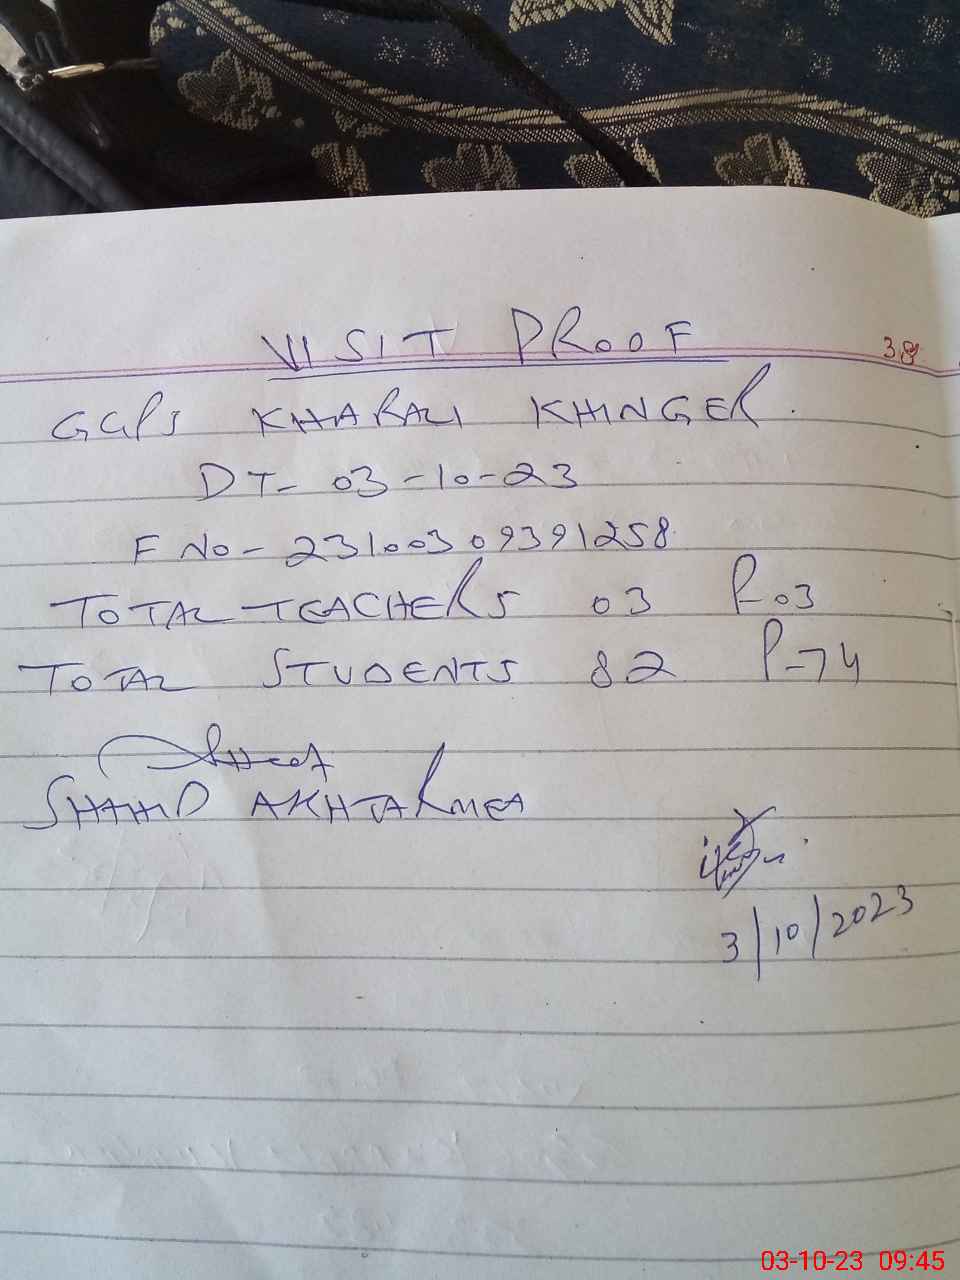 VISIT PROOF
38
GGPS KHARALI KHINGER.
DT- 03-10-23
F No- 23100309391258
TOTAL TEACHERS 03 P-03
TOTAL STUDENTS 82 P-74
SHAHID AKHTAR MEA
3/10/2023
03-10-23 09:45